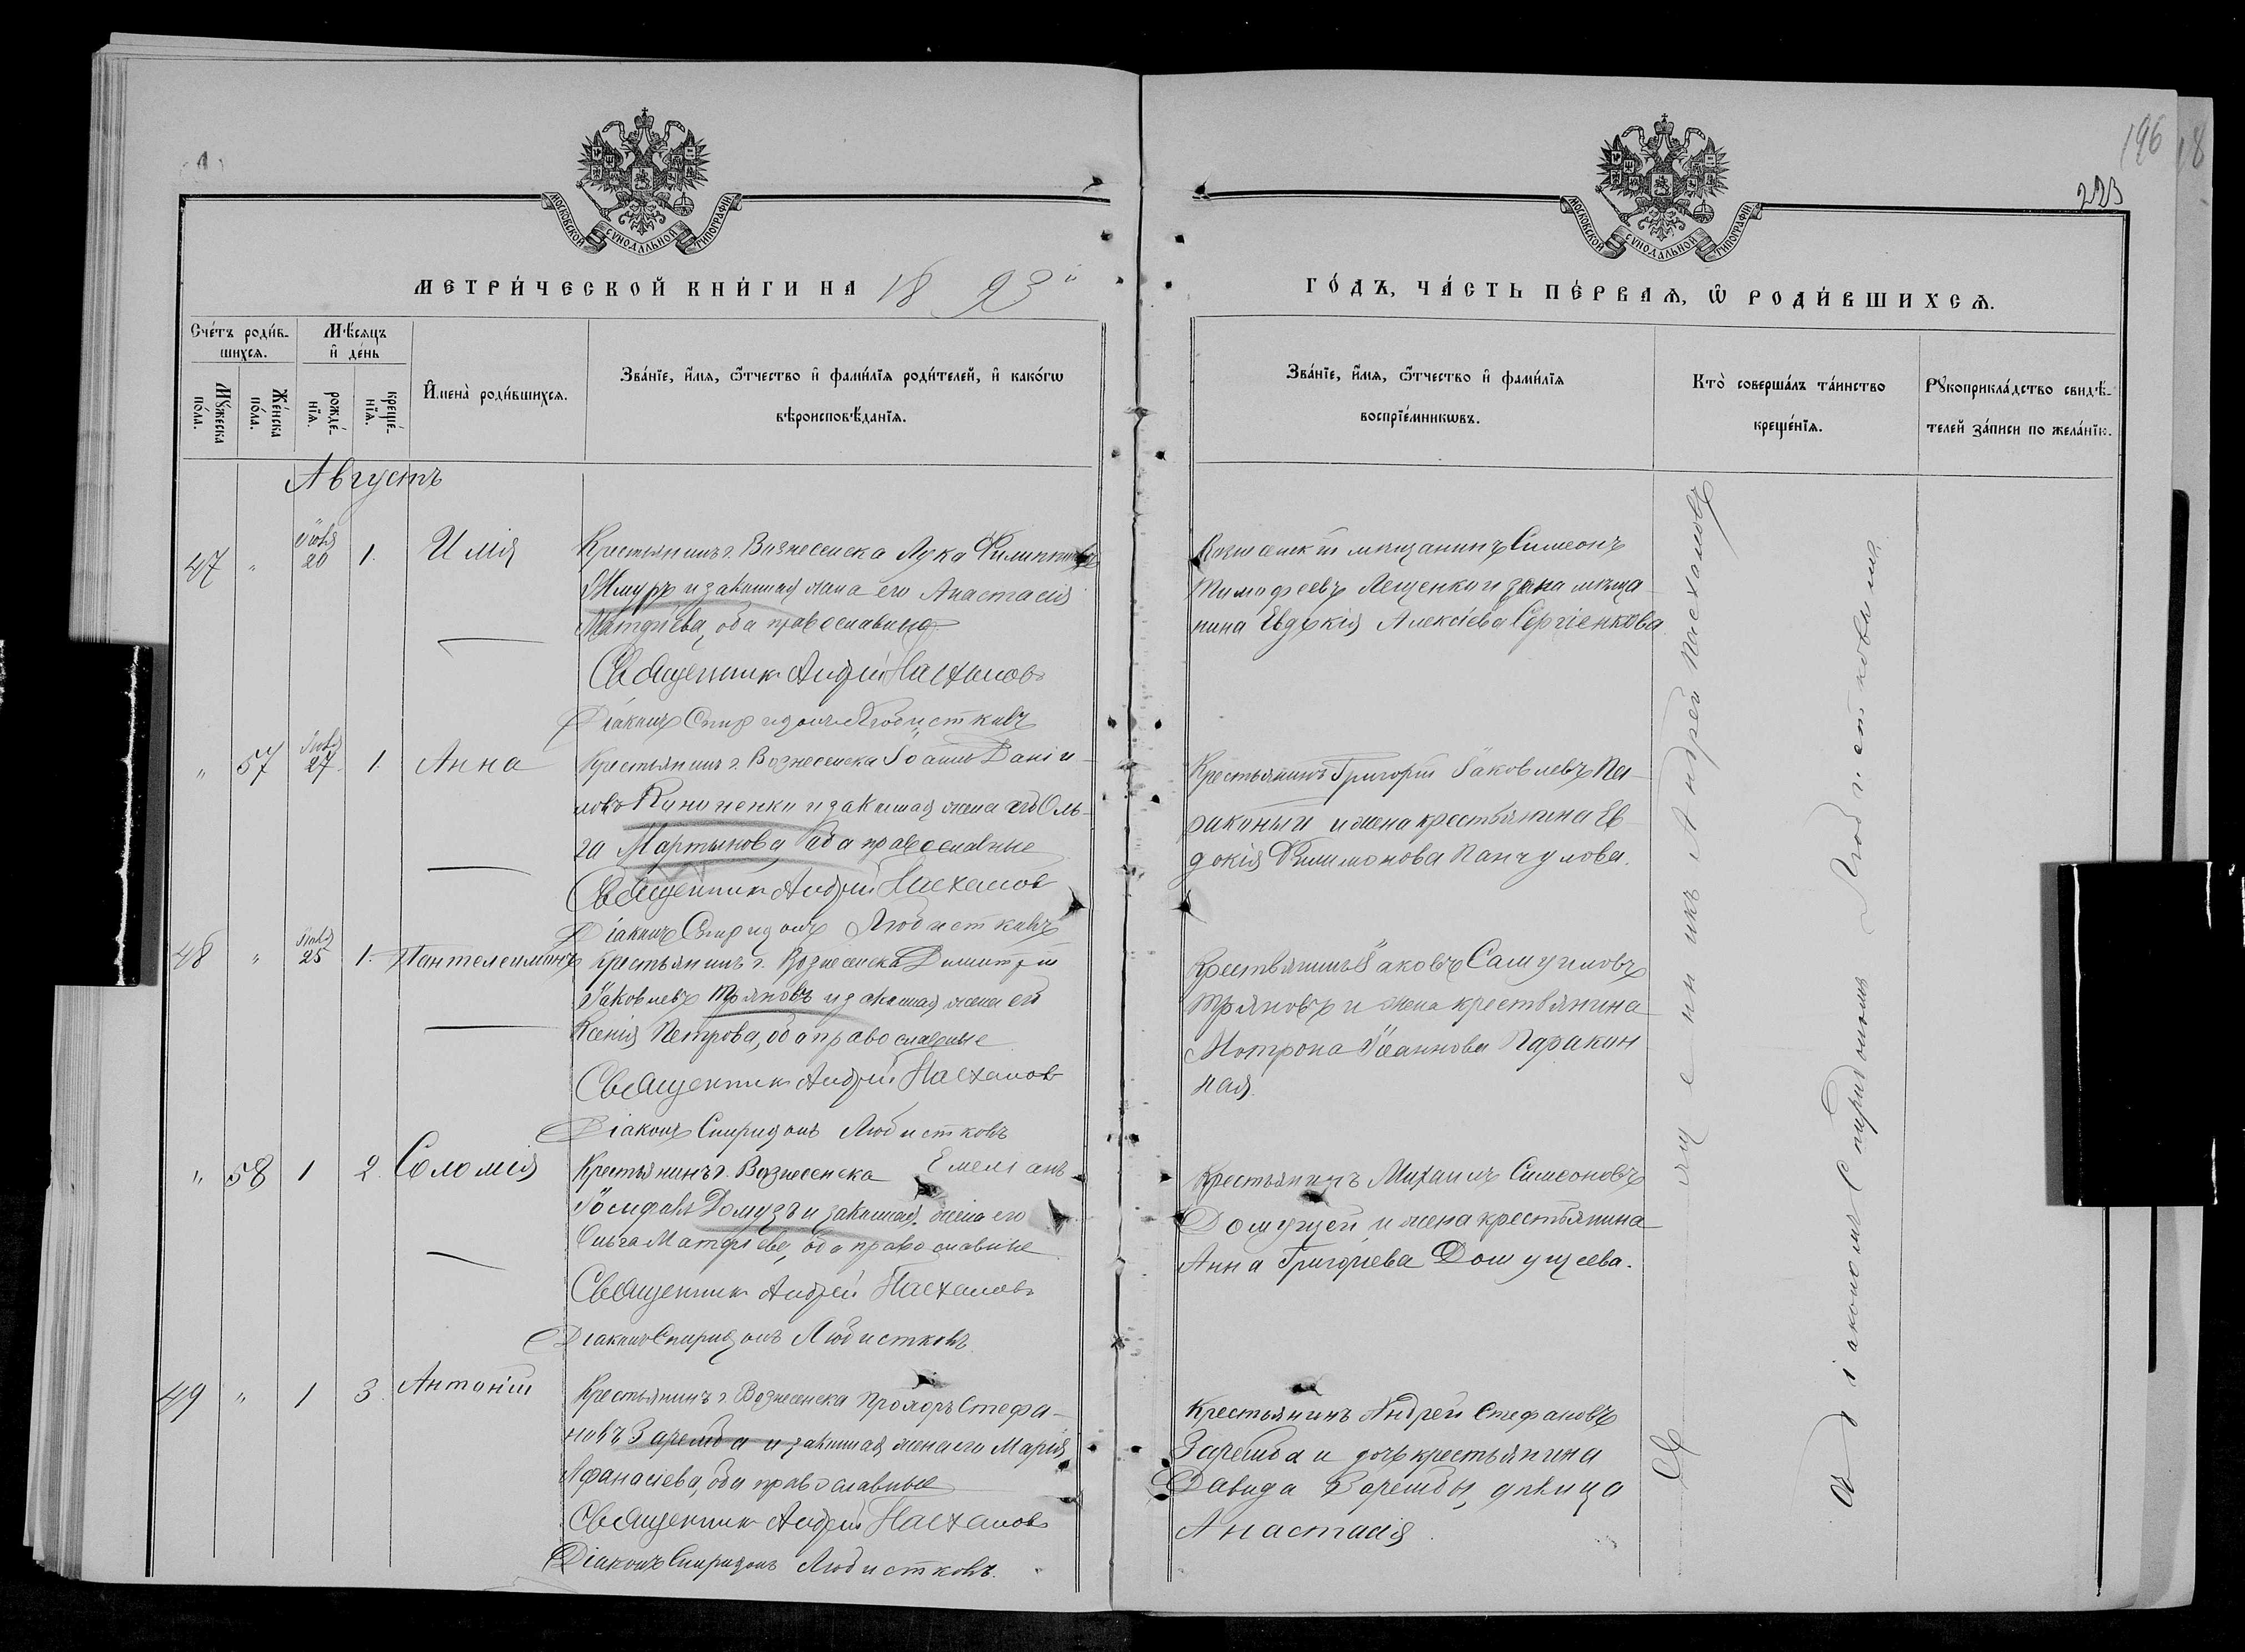 196
18
223
МОСКОВСКОЙ СУНОДАЛЬНОЙ ТИПОГРАФІИ
МОСКОВСКОЙ СУНОДАЛЬНОЙ ТИПОГРАФІИ
МЕТРИ́ЧЕСКОЙ КНИ́ГИ НА 18 93
ГО́ДЪ, ЧА́СТЬ ПЕ́РВАѦ, Ѡ҆ РОДИ́ВШИХСѦ.
Сче́тъ роди́в-
шихсѧ.
Мѣ́сѧцъ
и҆ де́нь
Мꙋ́жеска
по́ла.
Же́нска
по́ла.
рожде́-
нїѧ.
креще́-
нїѧ.
И҆мена̀ роди́вшихсѧ.
Зва́нїе, и҆́мѧ, ѻ҆́тчество и҆ фами́лїѧ роди́телей, и҆ како́гѡ
вѣроисповѣ́данїѧ.
Зва́нїе, и҆́мѧ, ѻ҆́тчество и҆ фами́лїѧ
воспрїе́мникѡвъ.
Кто̀ соверша́лъ та́инство
креще́нїѧ.
Рꙋкоприкла́дство свидѣ́-
телей за́писи по жела́нїю.
Августъ
47 " Іюля 20 1. Илія
Крестьянинъ г. Вознесенска Лука Филипповъ
и законная жена его Анастасія
Матфіева, оба православные
Священникъ Андрей Пасхаловъ
Діаконъ Спиридонъ Любистковъ
мѣщанинъ Симеонъ
Тимофеевъ Лещенко и жена мѣща-
нина Евдокія Алексіева Сергіенкова
" 57 Іюля 27 1. Анна
Крестьянинъ г. Вознесенска Іоаннъ Даніи-
ловъ Кононенко и законная жена его Оль-
га Мартынова, оба православные
Священникъ Андрей Пасхаловъ
Діаконъ Спиридонъ Любистковъ
Крестьянинъ Григорій Іаковлевъ Па-
и жена крестьянина Ев-
докія Филимонова Панчулова.
48 " Іюля 25 1. Пантелеимонъ
Крестьянинъ г. Вознесенска Димитрій
Іаковлевъ Трояновъ и законная жена его
Ксенія Петрова, оба православные
Священникъ Андрей Пасхаловъ
Діаконъ Спиридонъ Любистковъ
Крестьянинъ Іаковъ Самуиловъ
Трояновъ и жена крестьянина
Мотрона Іоаннова Паракин
ная.
" 58 1 2. Соломія
Крестьянинъ г. Вознесенска Емеліанъ
Іосифовъ и законная жена его
Ольга Матфіева, оба православные
Священникъ Андрей Пасхаловъ
Діаконъ Спиридонъ Любистковъ
Крестьянинъ Михаилъ Симеоновъ
и жена крестьянина
Анна Григоріева
49 " 1 3 Антоній
Крестьянинъ г. Вознесенска Прохоръ Стефа-
новъ Заремба и законная жена его Марія
Афанасіева, оба православные
Священникъ Андрей Пасхаловъ
Діаконъ Спиридонъ Любистковъ.
Крестьянинъ Андрей Стефановъ
Заремба и дочь крестьянина
Давида Зарембы, дѣвица
Анастасія
Священникъ Андрей Пасхаловъ
съ діакономъ Спиридономъ Любистковымъ.